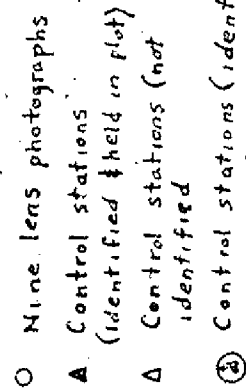 Nine lens photographs
Control stations
(identified & held in plot)
Control stations (not
identified
Control stations (ident